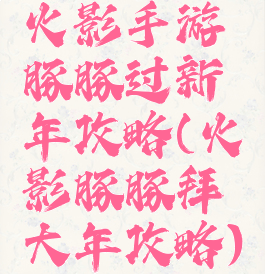 火影手游
豚豚过新
年攻略(火
影豚豚拜
大年攻略)